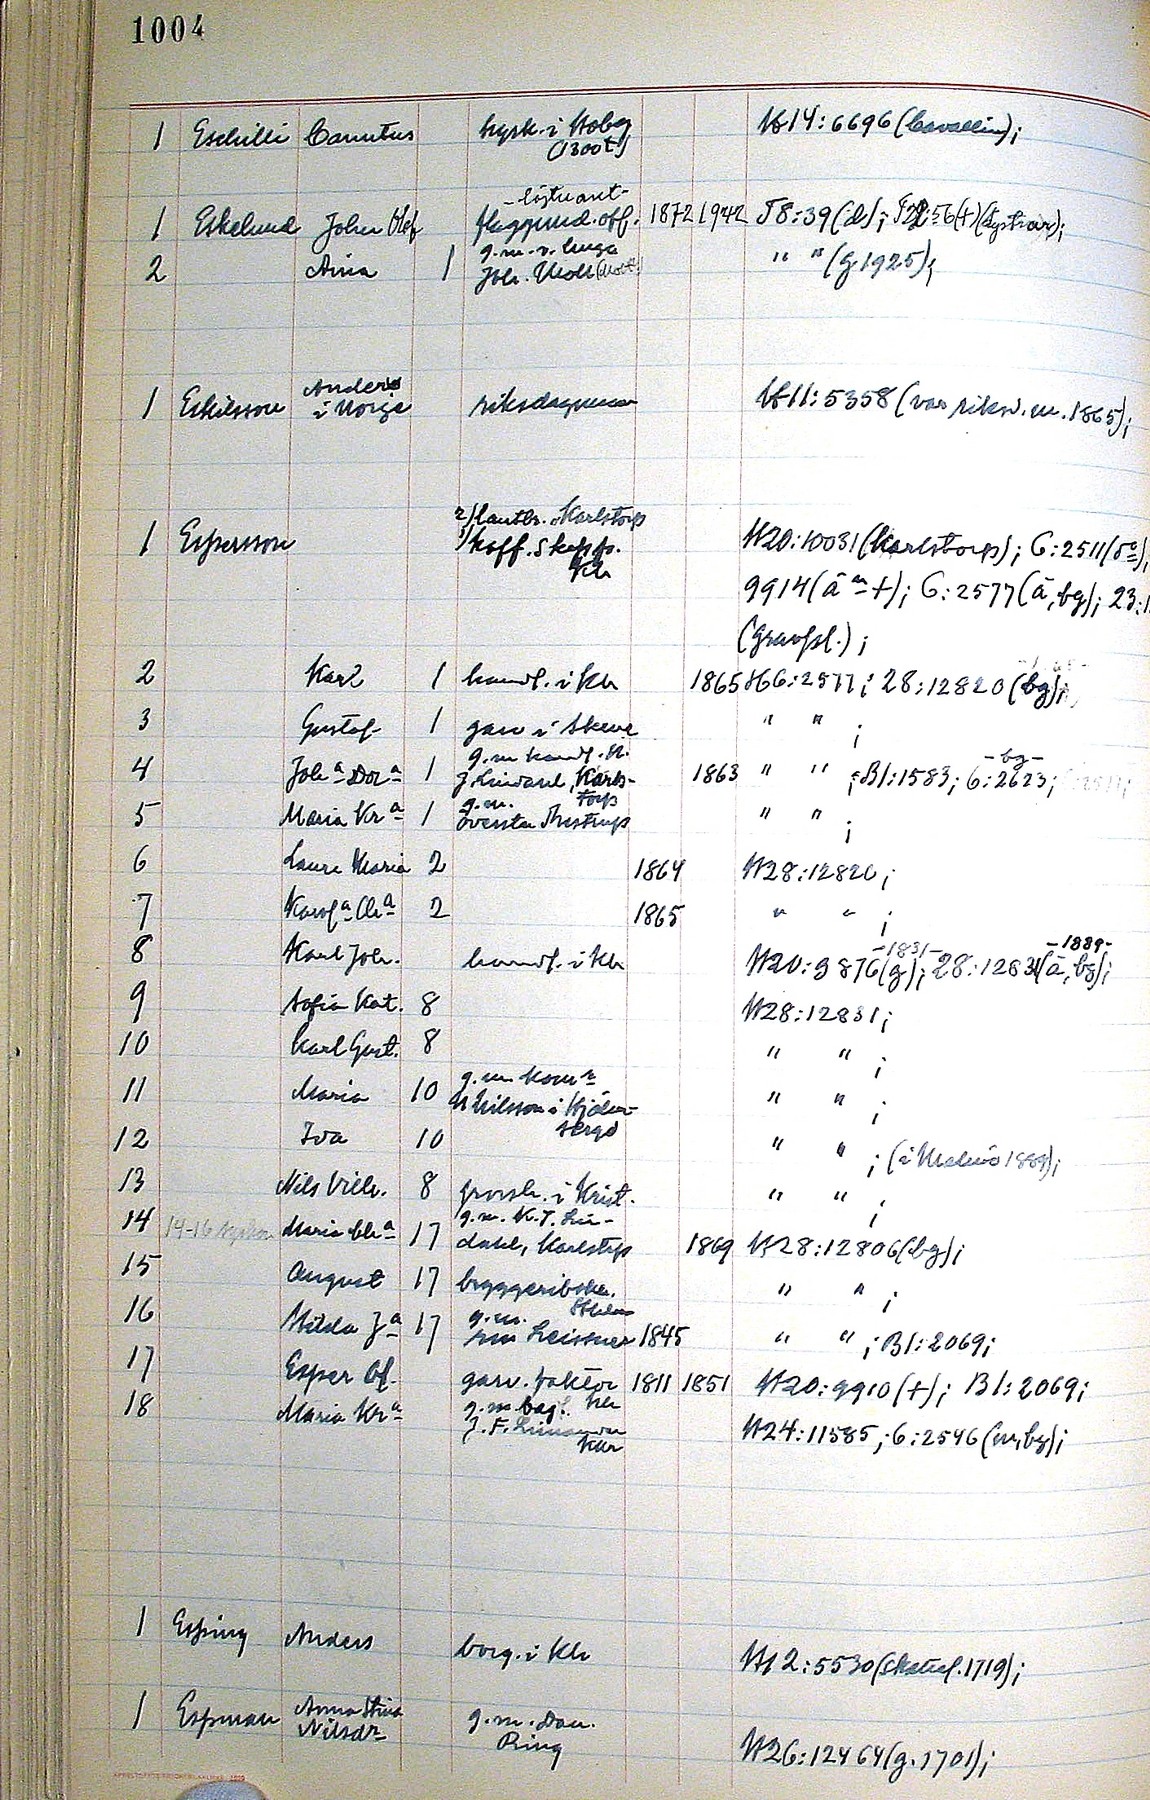 1004
1 Eschilli Canutus kyrk. i Hoby H14:6696 (Cavallin);
(1300t)
-löjtnant-
1 Eskelund John Olof flaggund.off. 1872 1942 T8:39(d);
2 Aina 1 Joh. " " (g 1925);
Anders
1 Eskilsson i Norje riksdagsman H11:5358 (var riksd.m. 1865);
2) lantbr. Karlstorp
1 Espersson 1) koff. skepp. H20:10031 (Karlstorp); 6:2511
Kh
9914 6:2577 (ā, bg); 23:1
(gravpl.);
2 Karl 1 handl. i Kh 1865 H6:2577; 28:12820 (bg);
3 Gustaf 1 garv i " " ;
g.m. handl. H.
4 Joh:a Dor:a 1 J. Lindahl, Karls- 1863 " " ; B1:1583; 6:2623; -bg-
torp
g.m.
5 Maria Kr:a 1 översten " " ;
6 Laura Maria 2 1864 H28:12820;
7 Karol:a Chr:a 2 1865 " " ;
8 Karl Joh. handl. i Kh H20:9876 (g); -1831- 28:12831 (ā, bg); -1889-
9 Sofia Kat. 8 H28:12831;
10 Karl Gust. 8 " " ;
g.m.
11 Maria 10 Nilsson i " " ;
12 Iva 10 " " ; (i Malmö 1889);
13 Nils Vilh. 8 grossh. i Krist. " " ;
g.m. K.J. Lin-
14 14-16 syskon Maria Chr:a 17 dahl, Karlstorp 1869 H28:12806 (bg);
15 August 17 bryggeribokh. " " ;
g.m.
16 Hilda J:a 17 Leissner 1845 " " ; B1:2069;
17 Esper Of. garv. faktor 1811 1851 H20:9910 (+); B1:2069;
Kh
18 Maria Kr:a g.m. H24:11585; 6:2546 (m, bg);
J.F.
Khr
1 Esping Anders borg. i Kh H12:5530 (skattel. 1719);
1 Espman Anna Stina g.m. Dan.
Nilsdr Ring H26:12464 (g. 1701);